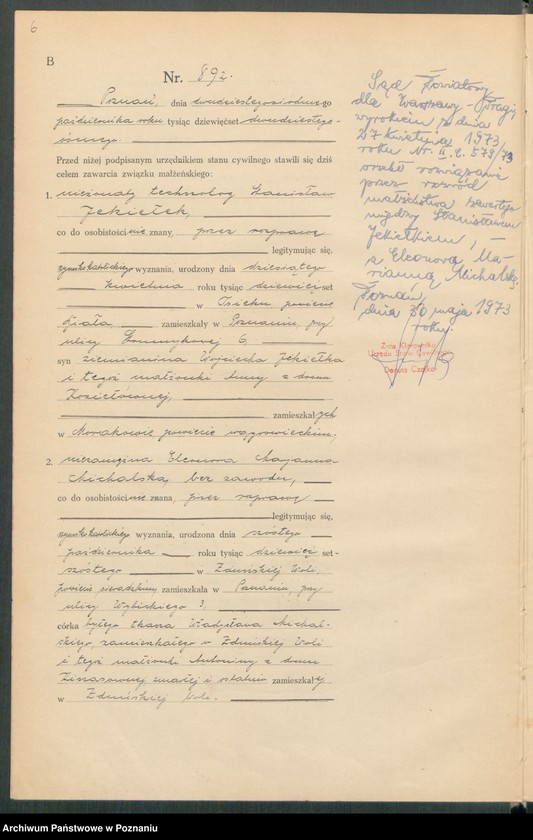 6
B
Nr. 892.
Poznań, dnia dwudziestegosiódmego
października roku tysiąc dziewięćset dwudziestego-
ósmego.
Przed niżej podpisanym urzędnikiem stanu cywilnego stawili się dziś
celem zawarcia związku małżeńskiego:
1. nieżonaty technolog Stanisław
Jekiełek,
co do osobistości nie znany, przez rozprawę
legitymując się,
rzymskokatolickiego wyznania, urodzony dnia dziesiątego
kwietnia roku tysiąc dziewięćset
w powiecie
Biała zamieszkały w Poznaniu, przy
ulicy 6,
syn ziemianina Wojciecha Jekiełka
i tegoż małżonki Anny z domu
Koziełównej,
zamieszkałych
w Nowakowie powiecie wągrowieckim.
2. niezamężna Eleonora Maryanna
Michalska, bez zawodu,
co do osobistości nie znana, przez rozprawę
legitymując się,
rzymskokatolickiego wyznania, urodzona dnia szóstego
października roku tysiąc dziewięćset-
szóstego w Zduńskiej Woli
powiecie sieradzkim zamieszkała w Poznaniu, przy
ulicy Wybickiego 3,
córka byłego tkacza Władysława Michal-
skiego, zamieszkałego w Zduńskiej Woli
i tegoż małżonki Antoniny z domu
zmarłej i ostatnio zamieszkałej
w Zduńskiej Woli.
Sąd Powiatowy
dla Warszawy - Pragi
wyrokiem z dnia
27 kwietnia 1973
roku Nr. II. C. 573/73
orzekł rozwiązanie
przez rozwód
małżeństwa zawartego
między Stanisławem
Jekiełkiem, -
a Eleonorą Ma-
rianną Michalską.
Poznań,
dnia 30 maja 1973
roku.
Z-ca Kierownika
Urzędu Stanu Cywilnego
Danuta
Archiwum Państwowe w Poznaniu